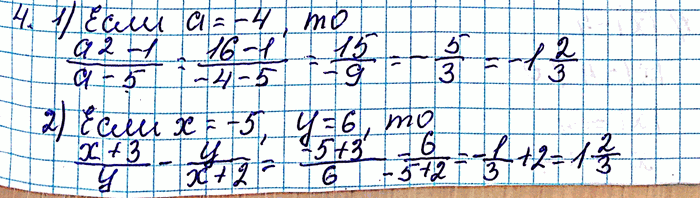 4. 1) Если a = -4, то
(a2 - 1)/(a - 5) = (16 - 1)/(-4 - 5) = 15/(-9) = -5/3 = -1 2/3
2) Если x = -5, y = 6, то
(x + 3)/y - y/(x + 2) = (-5 + 3)/6 - 6/(-5 + 2) = -1/3 + 2 = 1 2/3